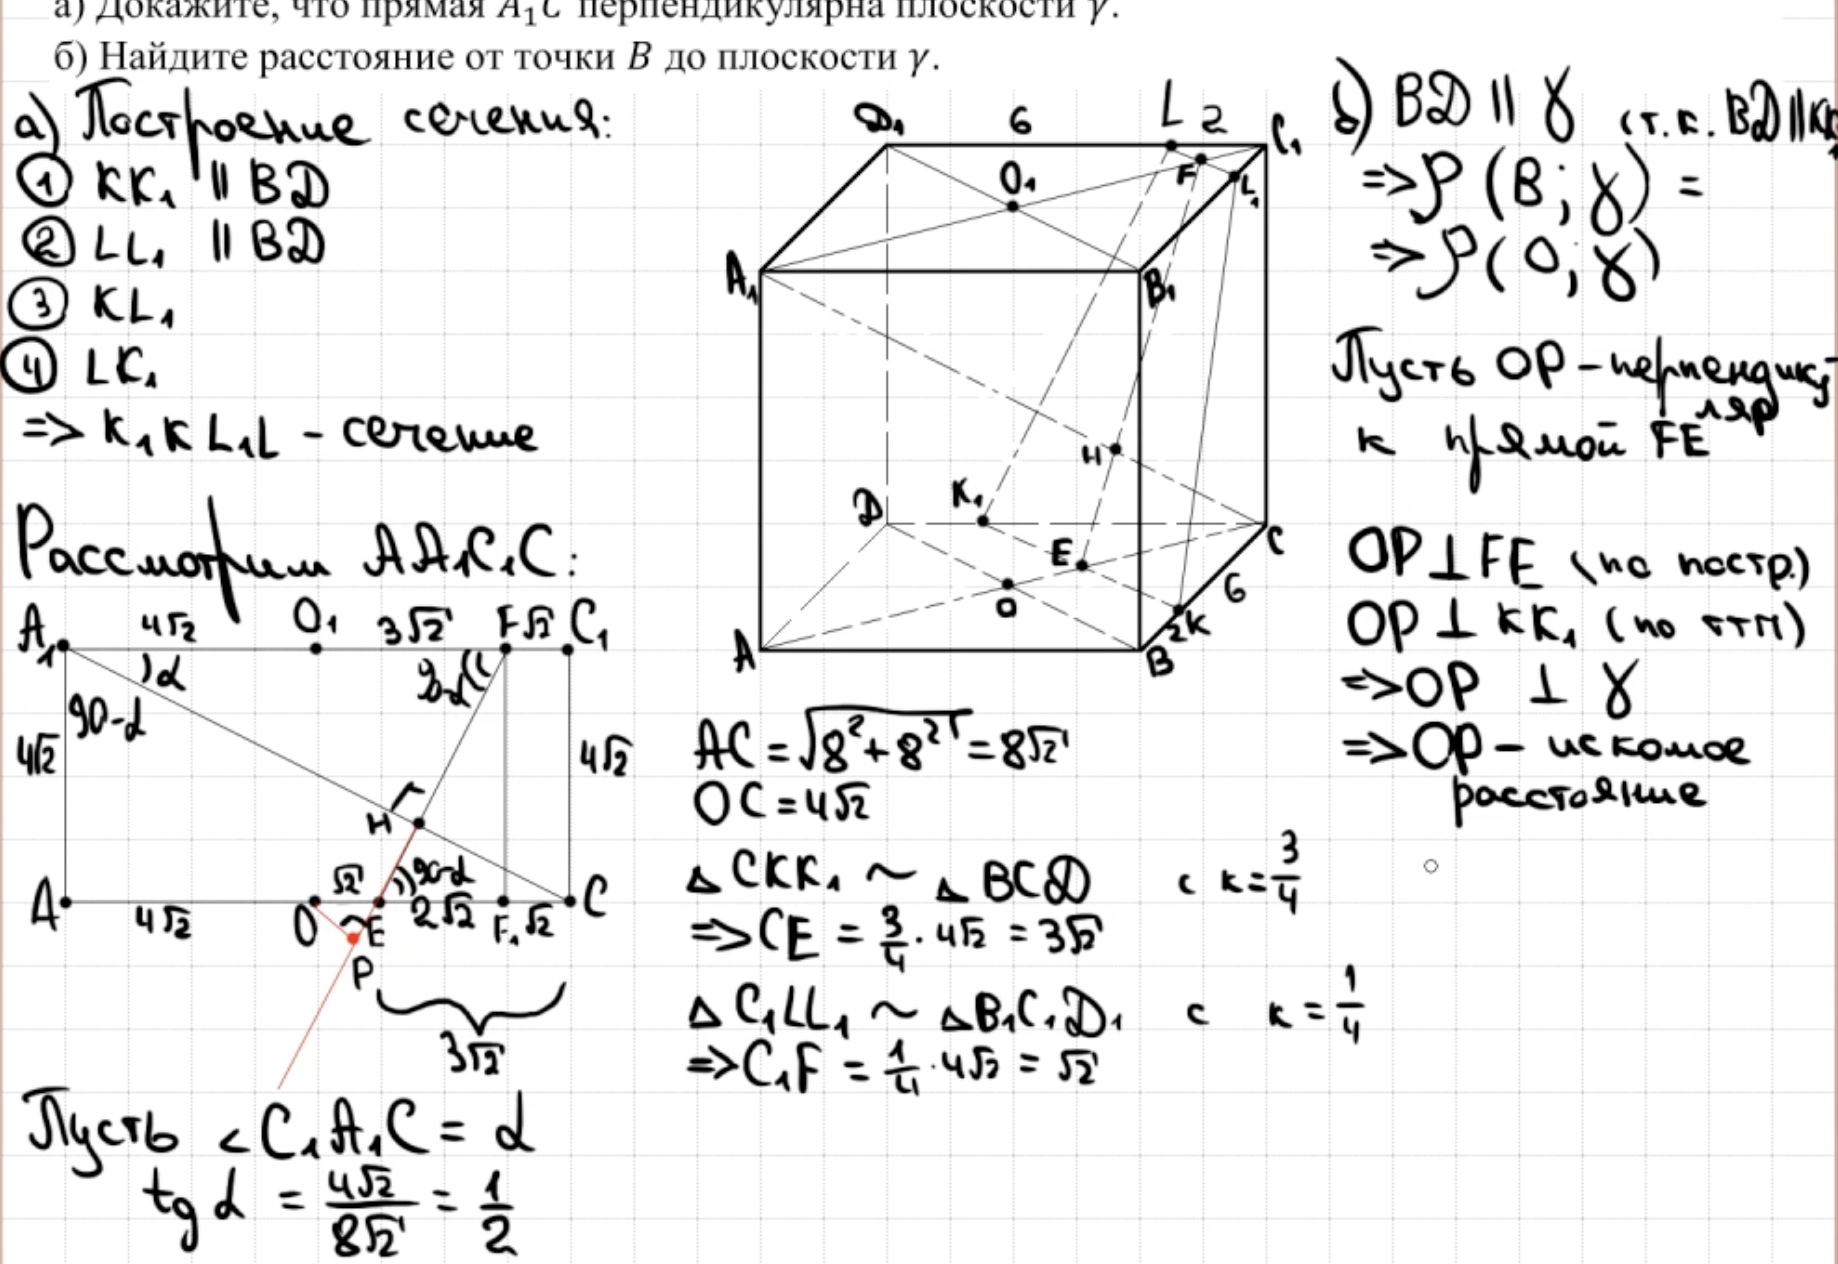 а) Докажите, что прямая A₁C перпендикулярна плоскости γ.
б) Найдите расстояние от точки B до плоскости γ.
а) Построение сечения:
① KK₁ || BD
② LL₁ || BD
③ KL₁
④ LK₁
=> K₁KL₁L - сечение
Рассмотрим AA₁C₁C:
A₁ 4√2 O₁ 3√2 F √2 C₁
α
90-α
4√2
4√2
H
√2
90-α
A 4√2 O E 2√2 F₁ √2 C
P
3√2
Пусть <C₁A₁C = α
tg α = 4√2/8√2 = 1/2
D₁ 6 L 2 C₁
O₁ F L₁
A₁ B₁
H
D K₁ E C
O 6
2 K
A B
AC = √8²+8² = 8√2
OC = 4√2
△ CKK₁ ~ △ BCD с k = 3/4
=> CE = 3/4 · 4√2 = 3√2
△ C₁LL₁ ~ △ B₁C₁D₁ с k = 1/4
=> C₁F = 1/4 · 4√2 = √2
б) BD || γ (т.к. BD || KK₁
=> ρ (B; γ) =
=> ρ (O; γ)
Пусть OP - перпендикуляр
к прямой FE
OP ⊥ FE (по постр.)
OP ⊥ KK₁ (по ттп)
=> OP ⊥ γ
=> OP - искомое
расстояние